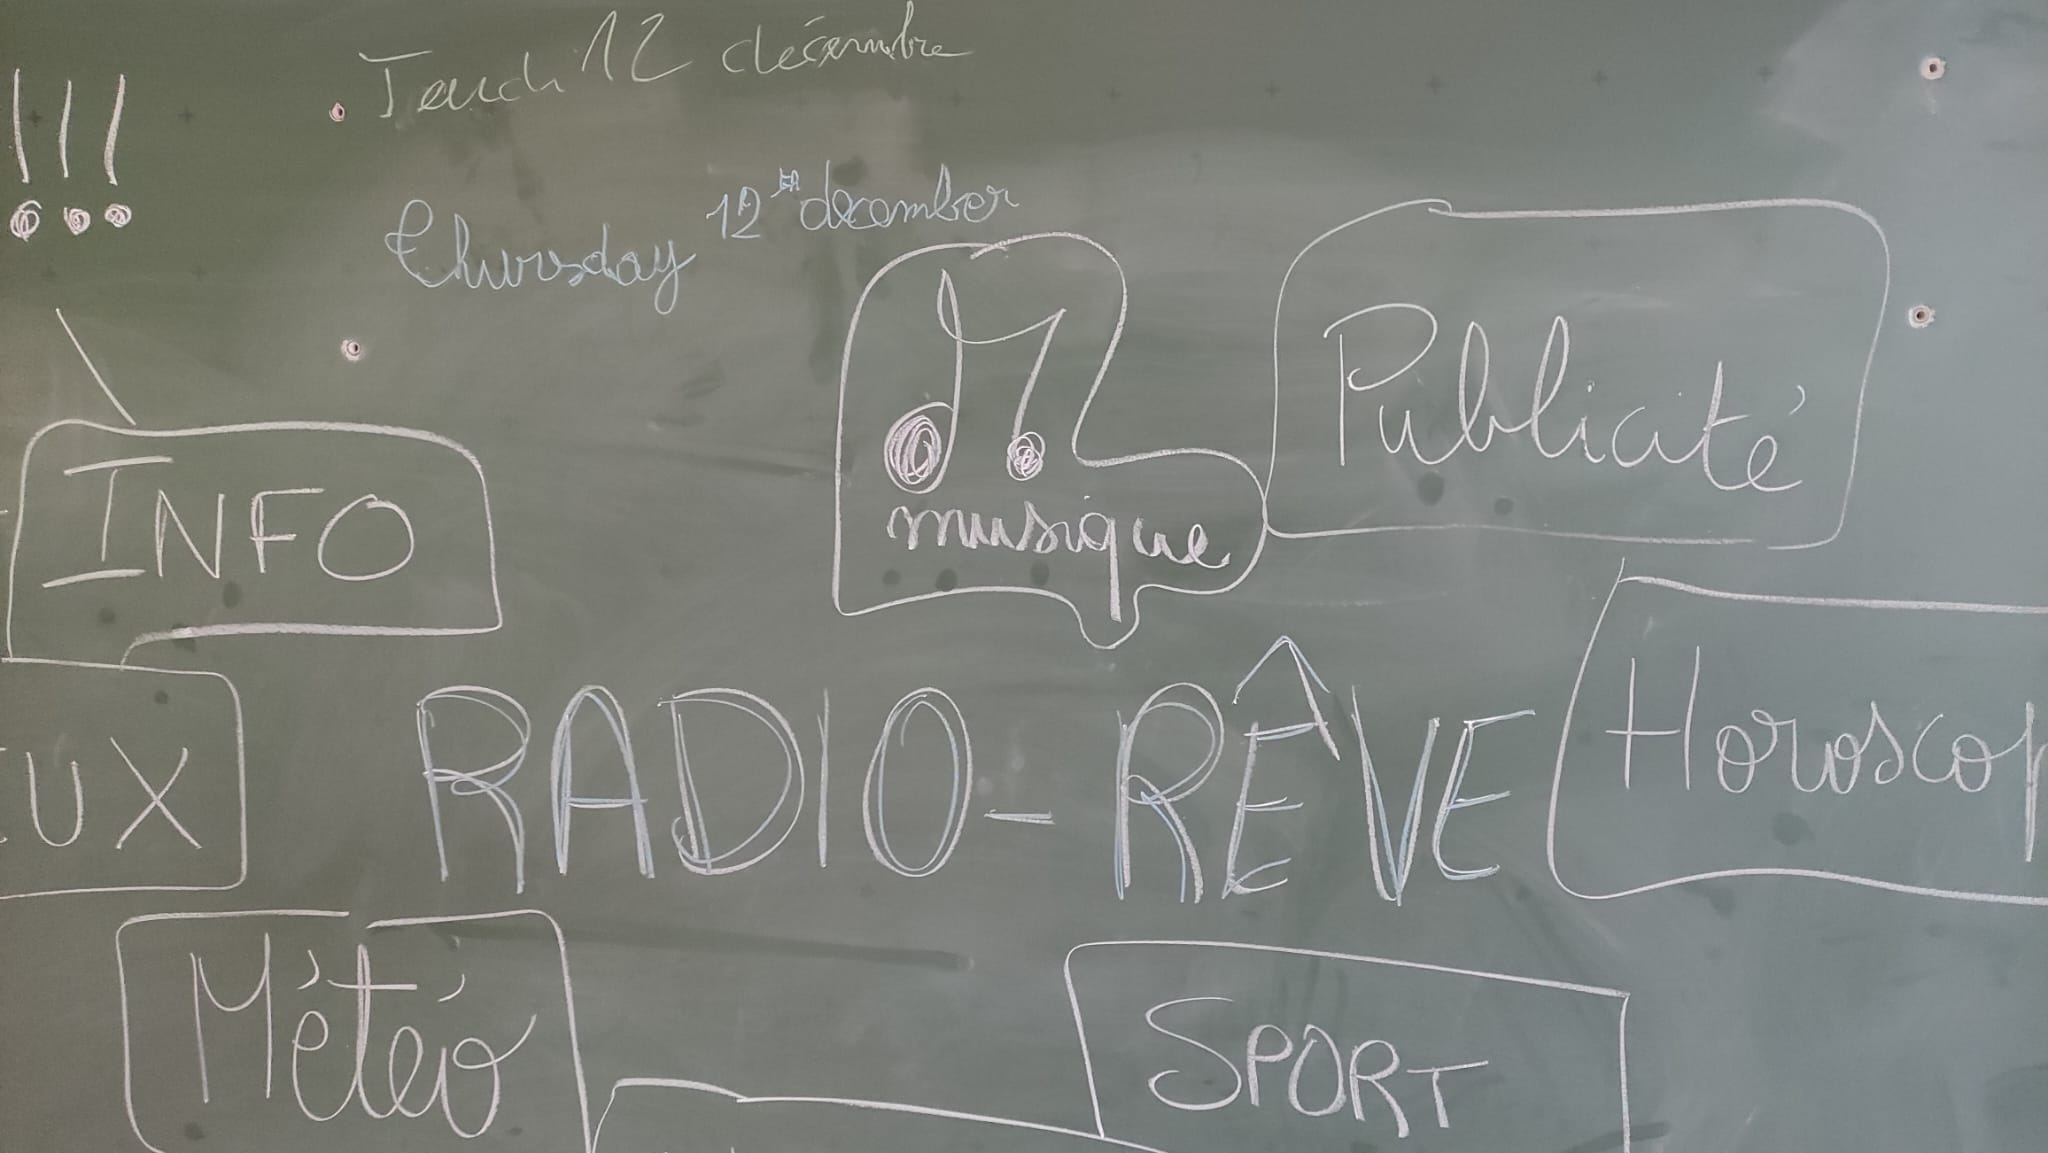 !!!
Jeudi 12 décembre
Thursday 12th december
musique
Publicité
INFO
RADIO-RÊVE
Horoscop
EUX
Météo
SPORT